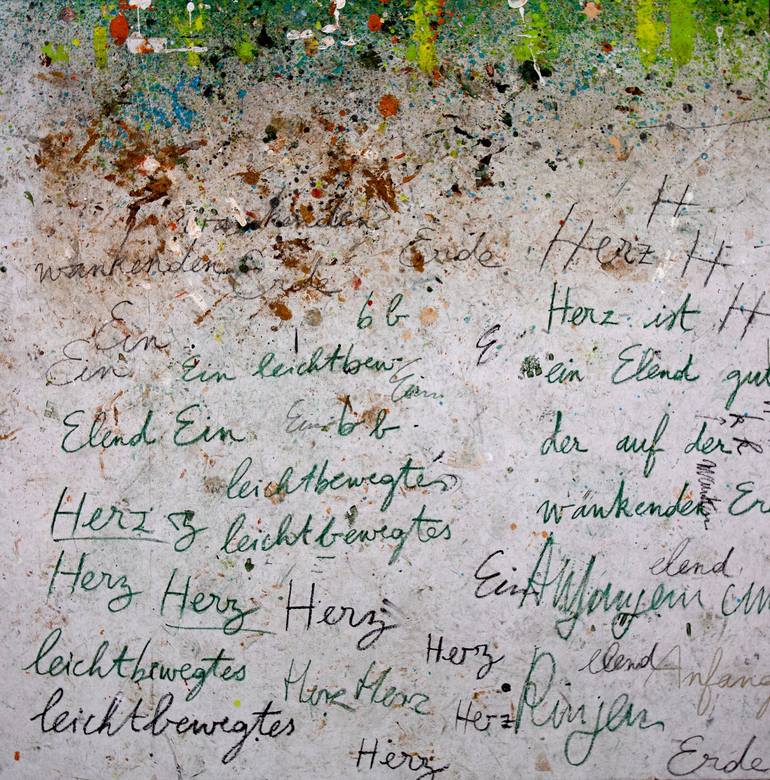 wankenden
wankenden Erde Erde Herz H H
H
Ein b b Herz ist H
Ein Ein leichtbew E ein Elend gut
Ein
Elend Ein Ein b b der auf der
leichtbewegtes
Herz z leichtbewegtes wankenden Er
Herz Herz Herz Ein elend
leichtbewegtes Herz elend Anfang
leichtbewegtes Herz Herz Herz
Herz Erde